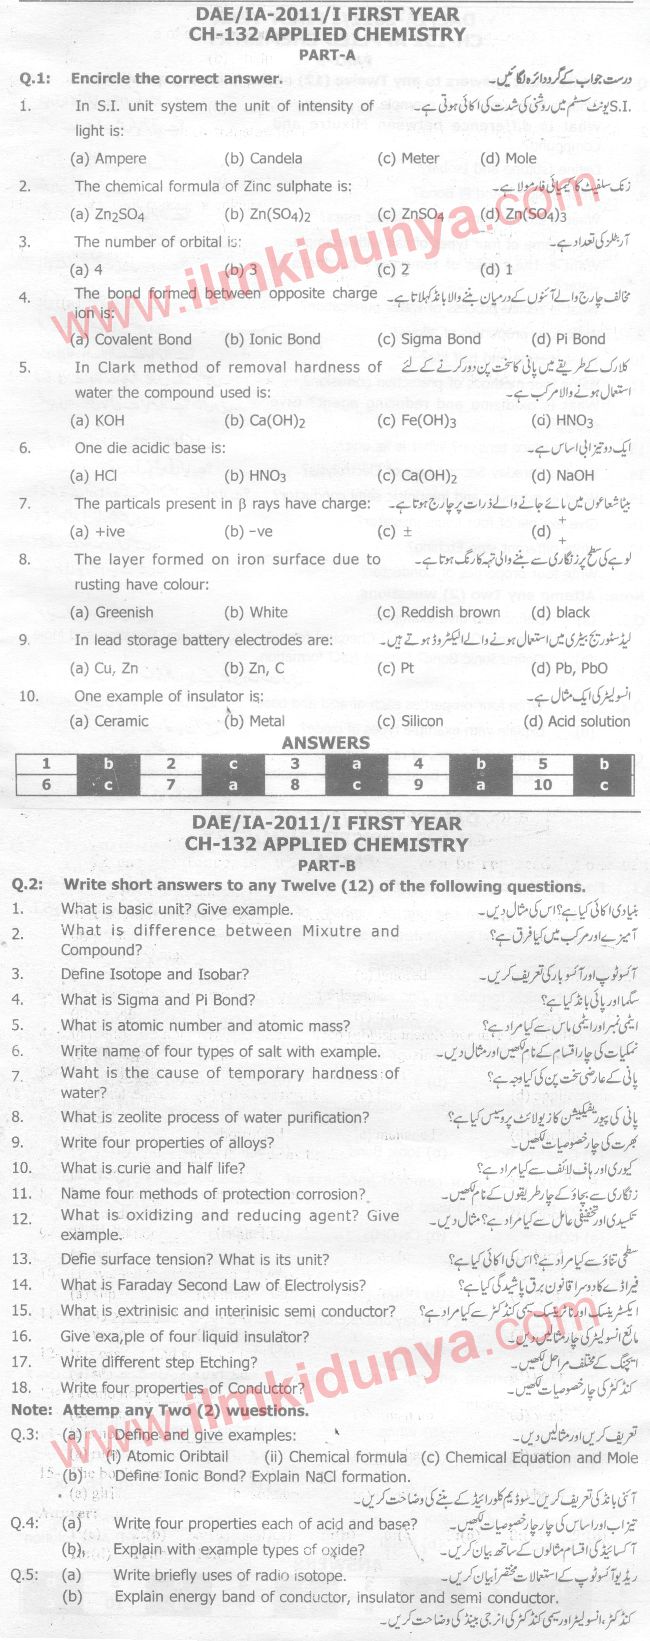 DAE/IA-2011/I FIRST YEAR
CH-132 APPLIED CHEMISTRY
PART-A
Q.1: Encircle the correct answer. درست جواب کے گرد دائرہ لگائیں۔
1. In S.I. unit system the unit of intensity of S.I. یونٹ سسٹم میں روشنی کی شدت کی اکائی ہوتی ہے۔
light is:
(a) Ampere (b) Candela (c) Meter (d) Mole
2. The chemical formula of Zinc sulphate is: زنک سلفیٹ کا کیمیائی فارمولا ہے۔
(a) Zn2SO4 (b) Zn(SO4)2 (c) ZnSO4 (d) Zn(SO4)3
3. The number of orbital is: آربٹلز کی تعداد ہے۔
(a) 4 (b) 3 (c) 2 (d) 1
4. The bond formed between opposite charge مخالف چارج والے آئنوں کے درمیان بننے والا بانڈ کہلاتا ہے۔
ion is:
(a) Covalent Bond (b) Ionic Bond (c) Sigma Bond (d) Pi Bond
5. In Clark method of removal hardness of کلارک کے طریقے میں پانی کا سخت پن دور کرنے کے لئے
water the compound used is: استعمال ہونے والا مرکب ہے۔
(a) KOH (b) Ca(OH)2 (c) Fe(OH)3 (d) HNO3
6. One die acidic base is: ایک دو تیزابی اساس ہے۔
(a) HCl (b) HNO3 (c) Ca(OH)2 (d) NaOH
7. The particals present in β rays have charge: بیٹا شعاعوں میں پائے جانے والے ذرات پر چارج ہوتا ہے۔
(a) +ive (b) -ve (c) ± (d) + +
8. The layer formed on iron surface due to لوہے کی سطح پر زنگاری سے بننے والی تہہ کا رنگ ہوتا ہے۔
rusting have colour:
(a) Greenish (b) White (c) Reddish brown (d) black
9. In lead storage battery electrodes are: لیڈ سٹوریج بیٹری میں استعمال ہونے والے الیکٹروڈ ہوتے ہیں۔
(a) Cu, Zn (b) Zn, C (c) Pt (d) Pb, PbO
10. One example of insulator is: انسولیٹر کی ایک مثال ہے۔
(a) Ceramic (b) Metal (c) Silicon (d) Acid solution
ANSWERS
1 b 2 c 3 a 4 b 5 b
6 c 7 a 8 c 9 a 10 c
DAE/IA-2011/I FIRST YEAR
CH-132 APPLIED CHEMISTRY
PART-B
Q.2: Write short answers to any Twelve (12) of the following questions.
1. What is basic unit? Give example. بنیادی اکائی کیا ہے؟ اس کی مثال دیں۔
2. What is difference between Mixutre and آمیزے اور مرکب میں کیا فرق ہے؟
Compound?
3. Define Isotope and Isobar? آئسوٹوپ اور آئسوبار کی تعریف کریں۔
4. What is Sigma and Pi Bond? سگما اور پائی بانڈ کیا ہے؟
5. What is atomic number and atomic mass? ایٹمی نمبر اور ایٹمی ماس سے کیا مراد ہے؟
6. Write name of four types of salt with example. نمکیات کی چار اقسام کے نام لکھیں اور مثال دیں۔
7. Waht is the cause of temporary hardness of پانی کے عارضی سخت پن کی کیا وجہ ہے؟
water?
8. What is zeolite process of water purification? پانی کی پیوریفیکیشن کا زیولائٹ پروسیس کیا ہے؟
9. Write four properties of alloys? بھرت کی چار خصوصیات لکھیں۔
10. What is curie and half life? کیوری اور ہاف لائف سے کیا مراد ہے؟
11. Name four methods of protection corrosion? زنگاری سے بچاؤ کے چار طریقوں کے نام لکھیں۔
12. What is oxidizing and reducing agent? Give تکسیدی اور تخفیفی عامل سے کیا مراد ہے؟ مثال دیں۔
example.
13. Defie surface tension? What is its unit? سطحی تناؤ سے کیا مراد ہے؟ اس کی اکائی کیا ہے؟
14. What is Faraday Second Law of Electrolysis? فیراڈے کا دوسرا قانون برق پاشیدگی کیا ہے؟
15. What is extrinisic and interinisic semi conductor? ایکسٹرینسک اور انٹرینسک سیمی کنڈکٹر سے کیا مراد ہے؟
16. Give exa,ple of four liquid insulator? مائع انسولیٹر کی چار مثالیں دیں۔
17. Write different step Etching? ایچنگ کے مختلف مراحل لکھیں۔
18. Write four properties of Conductor? کنڈکٹر کی چار خصوصیات لکھیں۔
Note: Attemp any Two (2) wuestions.
Q.3: (a) Define and give examples: تعریف کریں اور مثالیں دیں۔
(i) Atomic Oribtail (ii) Chemical formula (c) Chemical Equation and Mole
(b) Define Ionic Bond? Explain NaCl formation.
آئنی بانڈ کی تعریف کریں۔ سوڈیم کلورائیڈ کے بننے کی وضاحت کریں۔
Q.4: (a) Write four properties each of acid and base? تیزاب اور اساس کی چار چار خصوصیات لکھیں۔
(b) Explain with example types of oxide? آکسائیڈ کی اقسام مثالوں کے ساتھ بیان کریں۔
Q.5: (a) Write briefly uses of radio isotope. ریڈیو آئسوٹوپ کے استعمالات مختصراً بیان کریں۔
(b) Explain energy band of conductor, insulator and semi conductor.
کنڈکٹر، انسولیٹر اور سیمی کنڈکٹر کی انرجی بینڈ کی وضاحت کریں۔
www.ilmkidunya.com
www.ilmkidunya.com